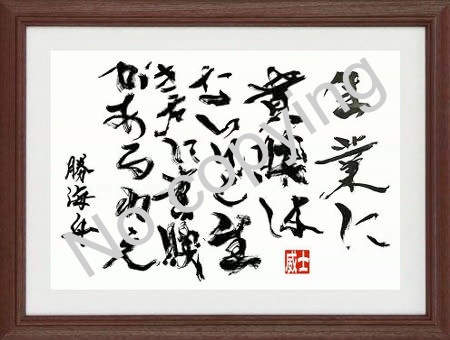 生業に
貴賤は
ないけど生
き方に貴賤
があるねえ
勝海舟
威士
No copying